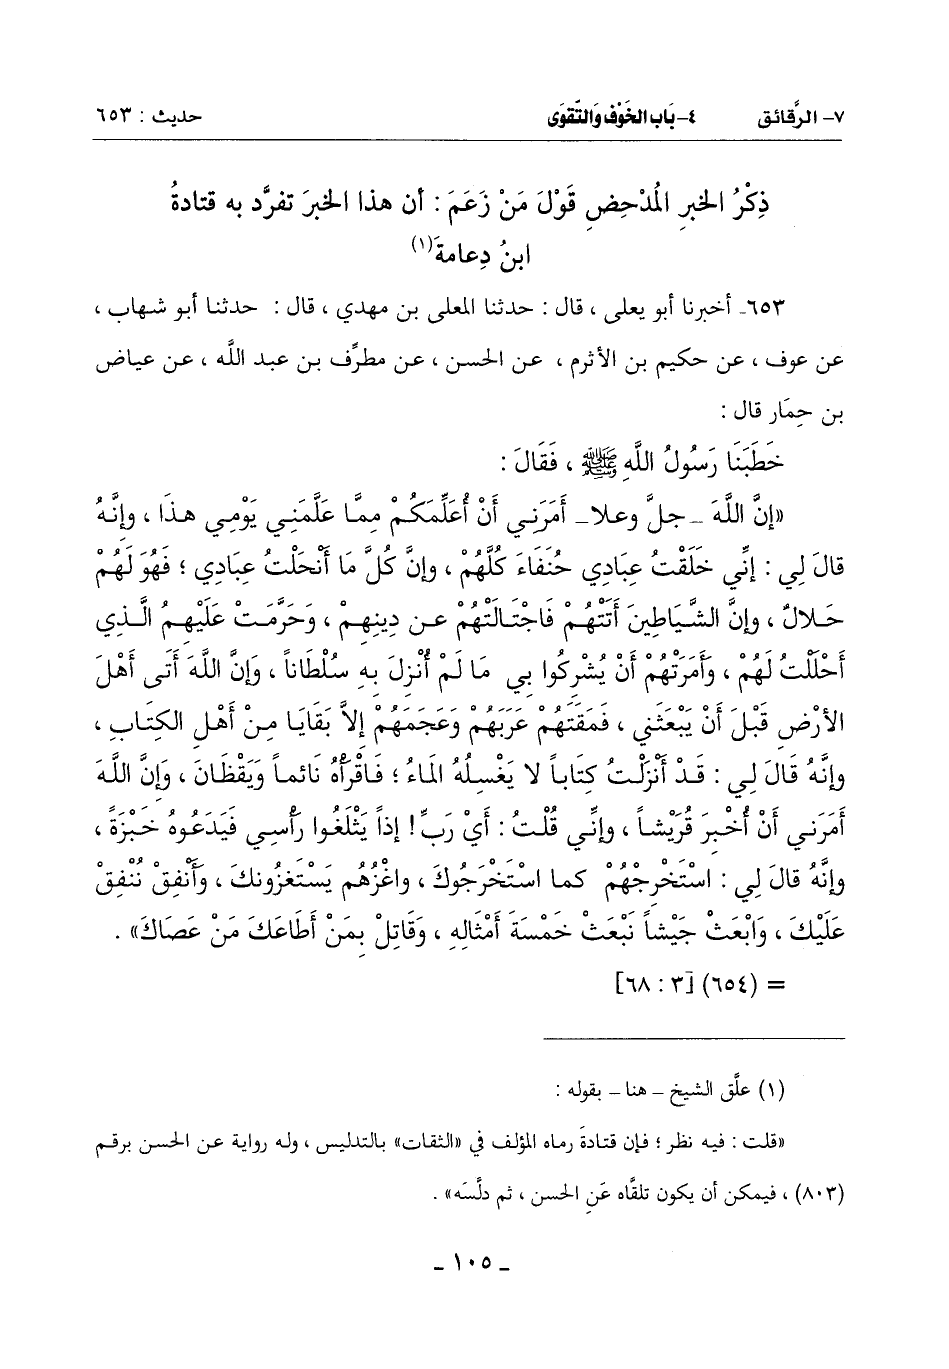 ٧- الرَّقائق ٤- بَاب الخَوْف والتَّقوَى حديث : ٦٥٣
ذِكْرُ الخبرِ المُدْحِضِ قَوْلَ مَنْ زَعَمَ : أن هذا الخبرَ تفرَّد به قتادةُ
ابنُ دِعامةَ(١)
٦٥٣ـ أخبرنا أبو يعلى ، قال : حدثنا المعلى بن مهدي ، قال : حدثنا أبو شهاب ،
عن عوف ، عن حكيم بن الأثرم ، عن الحسن ، عن مطرِّف بن عبد اللَّه ، عن عياض
بن حِمَار قال :
خَطَبَنَا رَسُولُ اللَّهِ ﷺ ، فَقَالَ :
«إنَّ اللَّهَ ـ جلَّ وعلا ـ أمَرَني أَنْ أُعَلِّمَكُمْ مِمَّا عَلَّمَني يَوْمِي هذَا ، وإنَّهُ
قالَ لِي : إنِّي خَلَقْتُ عِبَادِي حُنَفَاءَ كُلَّهُمْ ، وإنَّ كُلَّ مَا أَنْحَلْتُ عِبَادِي ؛ فَهُوَ لَهُمْ
حَلالٌ ، وإنَّ الشَّيَاطِينَ أَتَتْهُمْ فَاجْتَالَتْهُمْ عن دِينِهِمْ ، وَحَرَّمَتْ عَلَيْهِمُ الَّذِي
أَحْلَلْتُ لَهُمْ ، وَأَمَرَتْهُمْ أَنْ يُشْرِكُوا بِي مَا لَمْ أُنْزِلَ بِهِ سُلْطَاناً ، وَإنَّ اللَّهَ أَتَى أَهْلَ
الأَرْضِ قَبْلَ أَنْ يَبْعَثَني ، فَمَقَتَهُمْ عَرَبَهُمْ وَعَجَمَهُمْ إلاَّ بَقَايَا مِنْ أَهْلِ الكِتَابِ ،
وإنَّهُ قَالَ لِي : قَدْ أَنْزَلْتُ كِتَاباً لا يَغْسِلُهُ المَاءُ ؛ فَاقْرَأْهُ نَائماً وَيَقْظَانَ ، وَإنَّ اللَّهَ
أَمَرَني أَنْ أُخْبِرَ قُرَيْشاً ، وإنِّي قُلْتُ : أَيْ رَبِّ! إذاً يَثْلَغُوا رَأْسِي فَيَدَعُوهُ خُبْزَةً ،
وإنَّهُ قَالَ لِي : اسْتَخْرِجْهُمْ كما اسْتَخْرَجُوكَ ، واغْزُهُم يَسْتَغزُونكَ ، وَأَنْفِقْ نُنْفِقْ
عَلَيْكَ ، وَابْعَثْ جَيْشاً نَبْعَثْ خَمْسَةَ أَمْثَالِهِ ، وَقَاتِلْ بِمَنْ أَطَاعَكَ مَنْ عَصَاكَ» .
= (٦٥٤) [٣ : ٦٨]
(١) علَّق الشيخ ـ هنا ـ بقوله :
«قلت : فيه نظر ؛ فإن قتادةَ رماه المؤلف في «الثقات» بالتدليس ، وله رواية عن الحسن برقم
(٨٠٣) ، فيمكن أن يكون تلقَّاه عَنِ الحسن ، ثم دلَّسَه» .
ـ ١٠٥ ـ